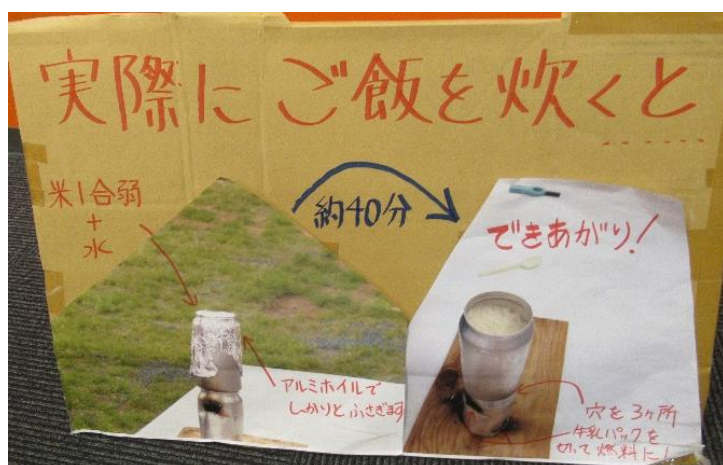 実際にご飯を炊くと......
米1合弱
+
水
約40分
できあがり!
アルミホイルで
しっかりとふさぎます
穴を3ヶ所
牛乳パックを
切って燃料に!